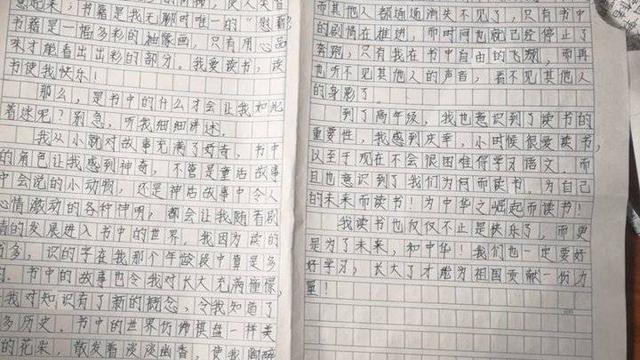 意起来，书籍是我无聊时唯一的“慰藉”
书籍是一幅多彩的油像画，只有用心品
味才能看出出彩的部分。我要读书，读
书使我快乐！
那么，是书中的什么才会让我如此
着迷呢？别急，听我细细讲述。
我从小就对故事充满了好奇，书中
的角色让我感到神奇，不管是童话故事
中会说的小动物，还是神话故事中令人
心情激动的各种神明，都会让我随着剧
情的发展进入书中的世界，我因为读的
多，识的字在我那个年龄段中算是多
书中的故事也令我对长大充满憧憬，
我对知识有了新的概念，令我知道了
多历史。书中的世界仿佛棋盘一样美
的花朵，散发着淡淡幽香，使我陶醉
而其他人都通通消失不见了，只有书中
的剧情在推进，而时间也就已经停止了
奔跑，只有我在书中自由的飞翔，而再
也听不见其他人的声音，看不见其他人
的身影了。
到了高年级，我也意识到了读书的
重要性，我感到庆幸，小时候很爱读书，
以至于现在不会很困难得学习语文。而
且也意识到了我们为何而读书，为自己
的未来而读书！为中华之崛起而读书！
我读书也仅仅不止是快乐了，而更
是为了未来，和中华！我们也一定要好
好学习，长大了才能为祖国贡献一份力
量！